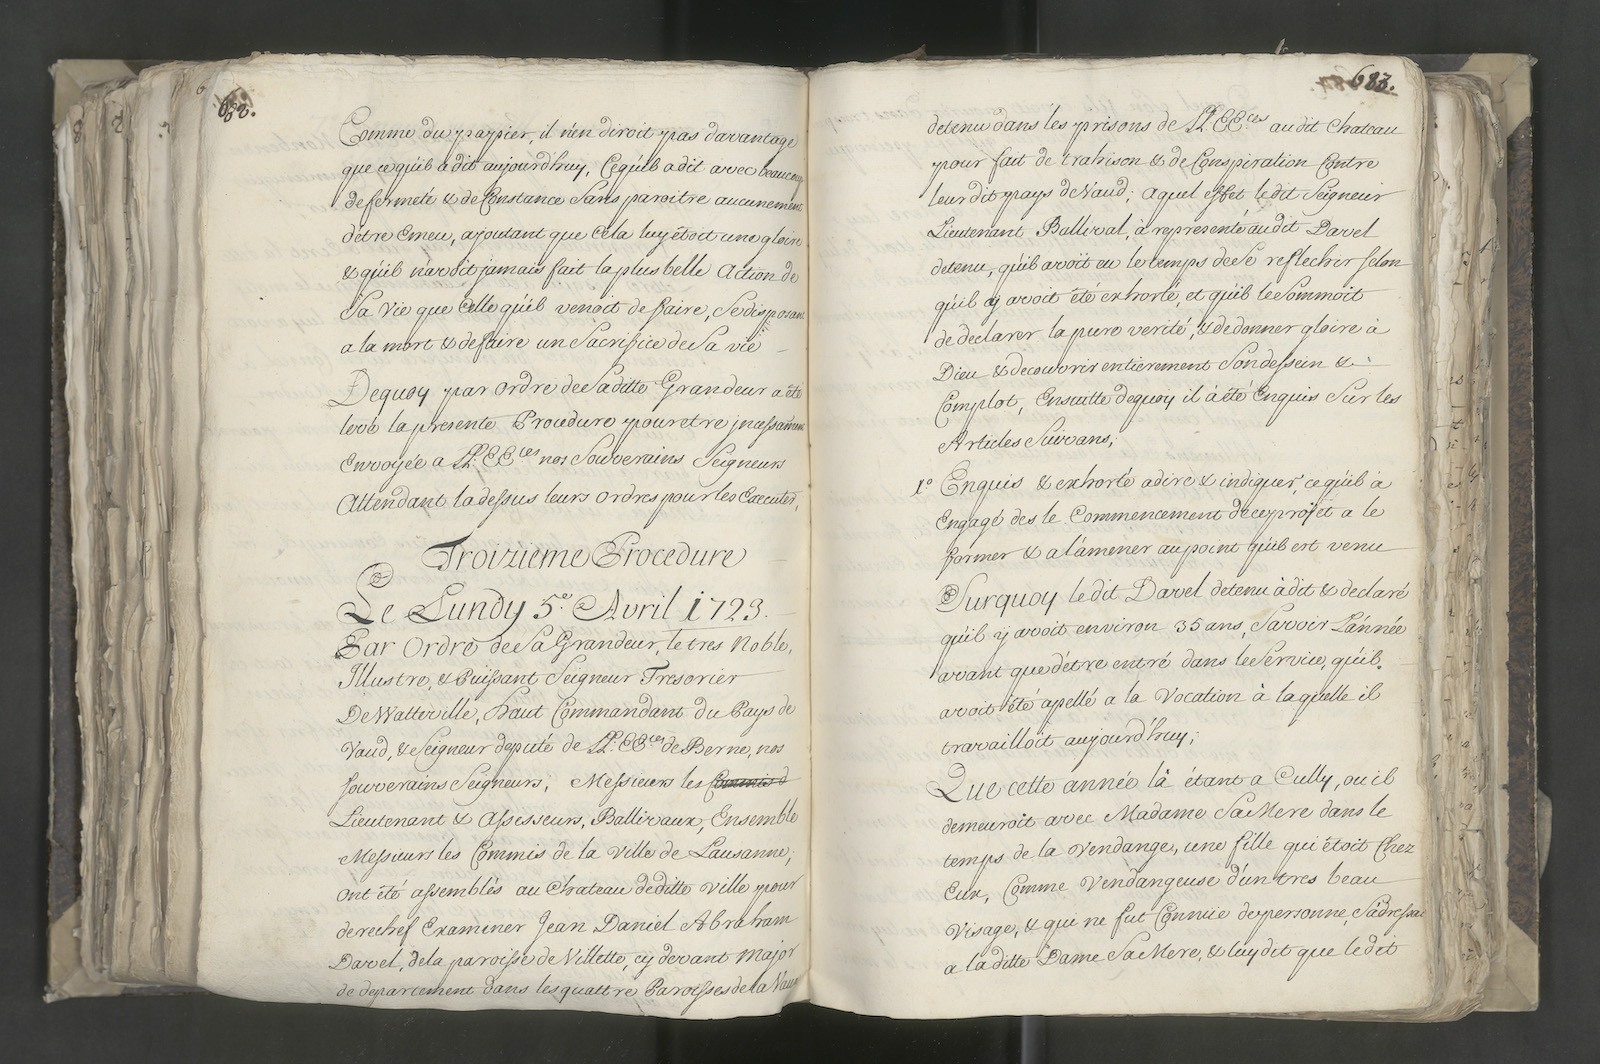 682.
Comme du pappier, il n'en diroit pas davantage
que ce qu'ib a dit aujourd'huy, Ce qu'ib a dit avec beaucoup
de fermeté & de Constance Sans paroitre aucunement
d'etre Emeu, ajoutant que Cela luy étoit une gloire
& qu'ib n'avoit jamais fait la plus belle Action de
Sa Vie que Celle qu'ib venoit de faire, Se disposant
a la mort & de faire un Sacrifice de Sa vie
Dequoy par ordre de Saditte Grandeur a été
levé la presente Procedure pour etre jncessament
Envoyée a LL.EE.ces nos Souverains Seigneurs
Attendant la dessus leurs ordres pour les Executer,
Troizieme Procedure
Le Lundy 5.e Avril 1723.
Par Ordre de Sa Grandeur, le tres Noble,
Illustre, & Puissant Seigneur Tresorier
De Watteville, haut Commandant du Pays de
Vaud, & Seigneur deputé de LL.EE.ces de Berne, nos
souverains Seigneurs, Messieurs les
Lieutenant & Assisseurs, Ballivaux, Ensemble
Messieurs les Commis de la Ville de Lausanne,
ont été assemblés au Chateau de ditte ville pour
derechef Examiner Jean Daniel Abraham
Davel, de la paroisse de Villette, cy devant Major
de departement dans les quattre Paroisses de la Vaux
683.
detenu dans les prisons de LL.EE.ces audit Chateau
pour fait de trahison & de Conspiration Contre
leur dit pays de Vaud; a quel effet le dit Seigneur
Lieutenant Ballival, à representé audit Davel
detenu, qu'ib avoit eu le temps de Se reflechir selon
qu'ib y avoit été exhorté, et qu'ib le Sommoit
de declarer la pure verité, & de donner gloire à
Dieu & decouvrir entierement Son dessein &
Complot, Ensuitte dequoy il à été Enquis Sur les
Articles Suivans;
1.o Enquis & exhorté a dire & indiquer, ce qu'ib a
Engagé des le Commencement de ce projet a le
former & a l'amener au point qu'ib est venu
Surquoy le dit Davel detenu à dit & declaré
qu'ib y avoit environ 35 ans, Savoir L'année
avant que d'etre entré dans le Service, qu'ib
avoit été apellé a la Vocation à la quelle il
travailloit aujourd'huy;
Que cette année là étant a Cully, ou il
demeuroit avec Madame Sa Mere dans le
temps de la vendange, une fille qui étoit Chez
Eux, Comme Vendangeuse d'un tres beau
Visage, & qui ne fut Connüe de personne, S'adressa
a la ditte Dame Sa Mere, & luy dit que le dit